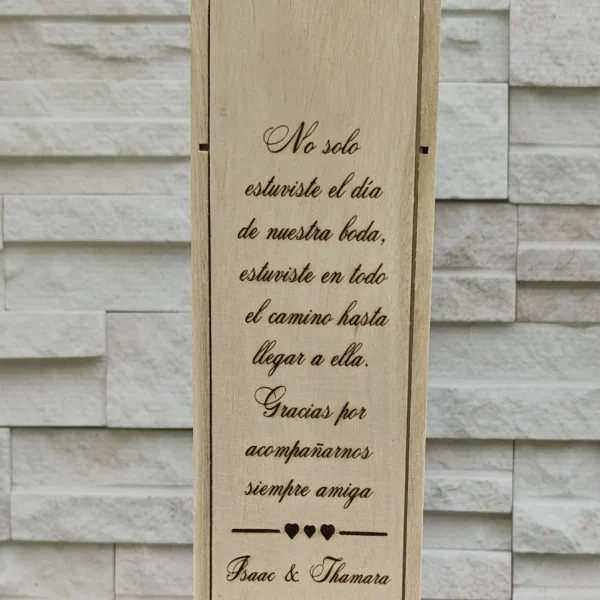 No solo
estuviste el día
de nuestra boda,
estuviste en todo
el camino hasta
llegar a ella.
Gracias por
acompañarnos
siempre amiga
Isaac & Thamara